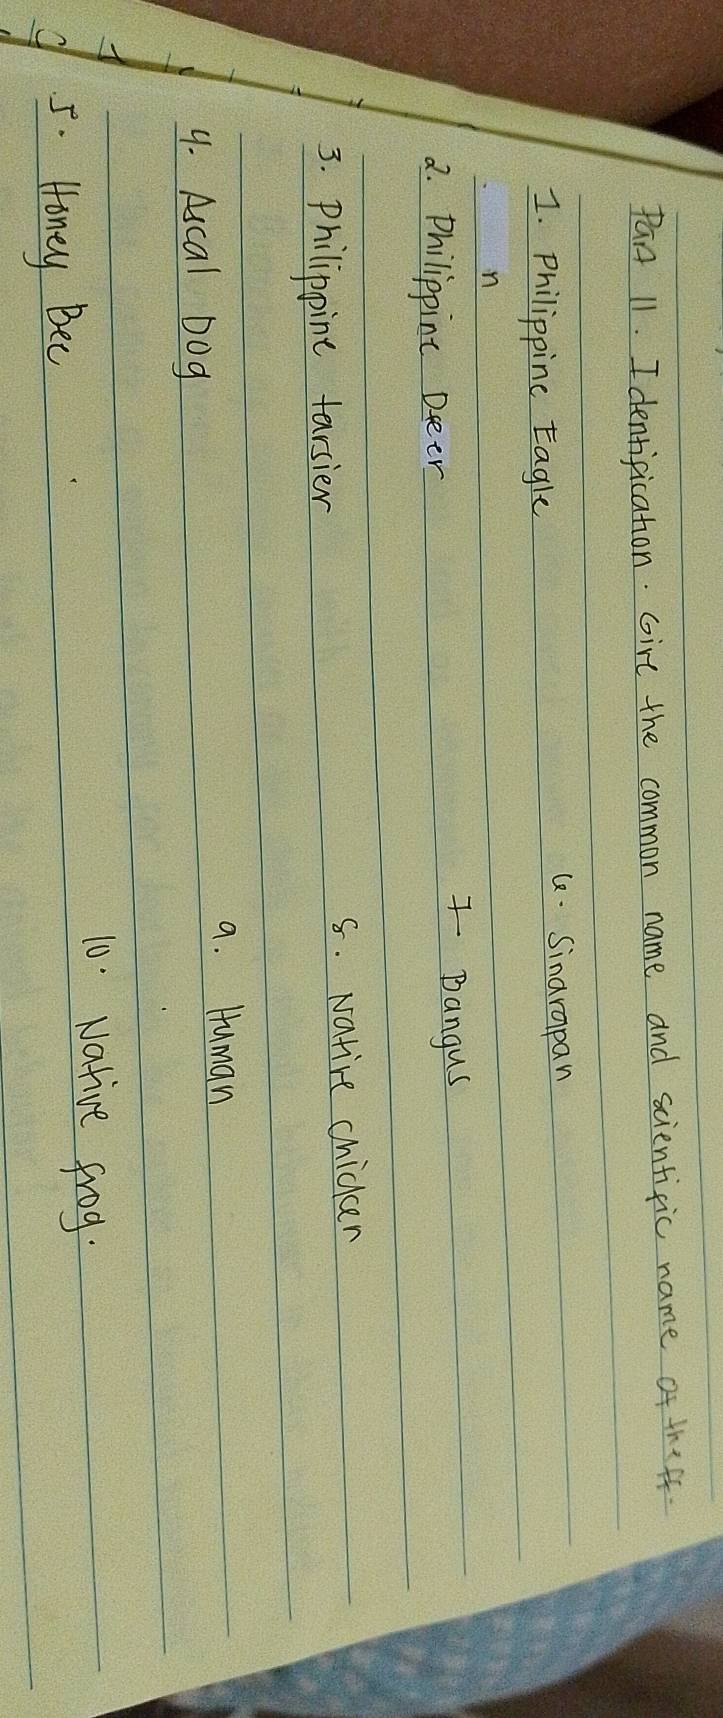 Part II. Identification. Give the common name and scientific name of the ff.
1. Philippine Eagle
6. Sinarapan
n
2. Philippine Deer
7. Bangus
3. Philippine tarsier
8. Native chicken
4. Ascal Dog
9. Human
5. Honey Bee
10. Native frog.